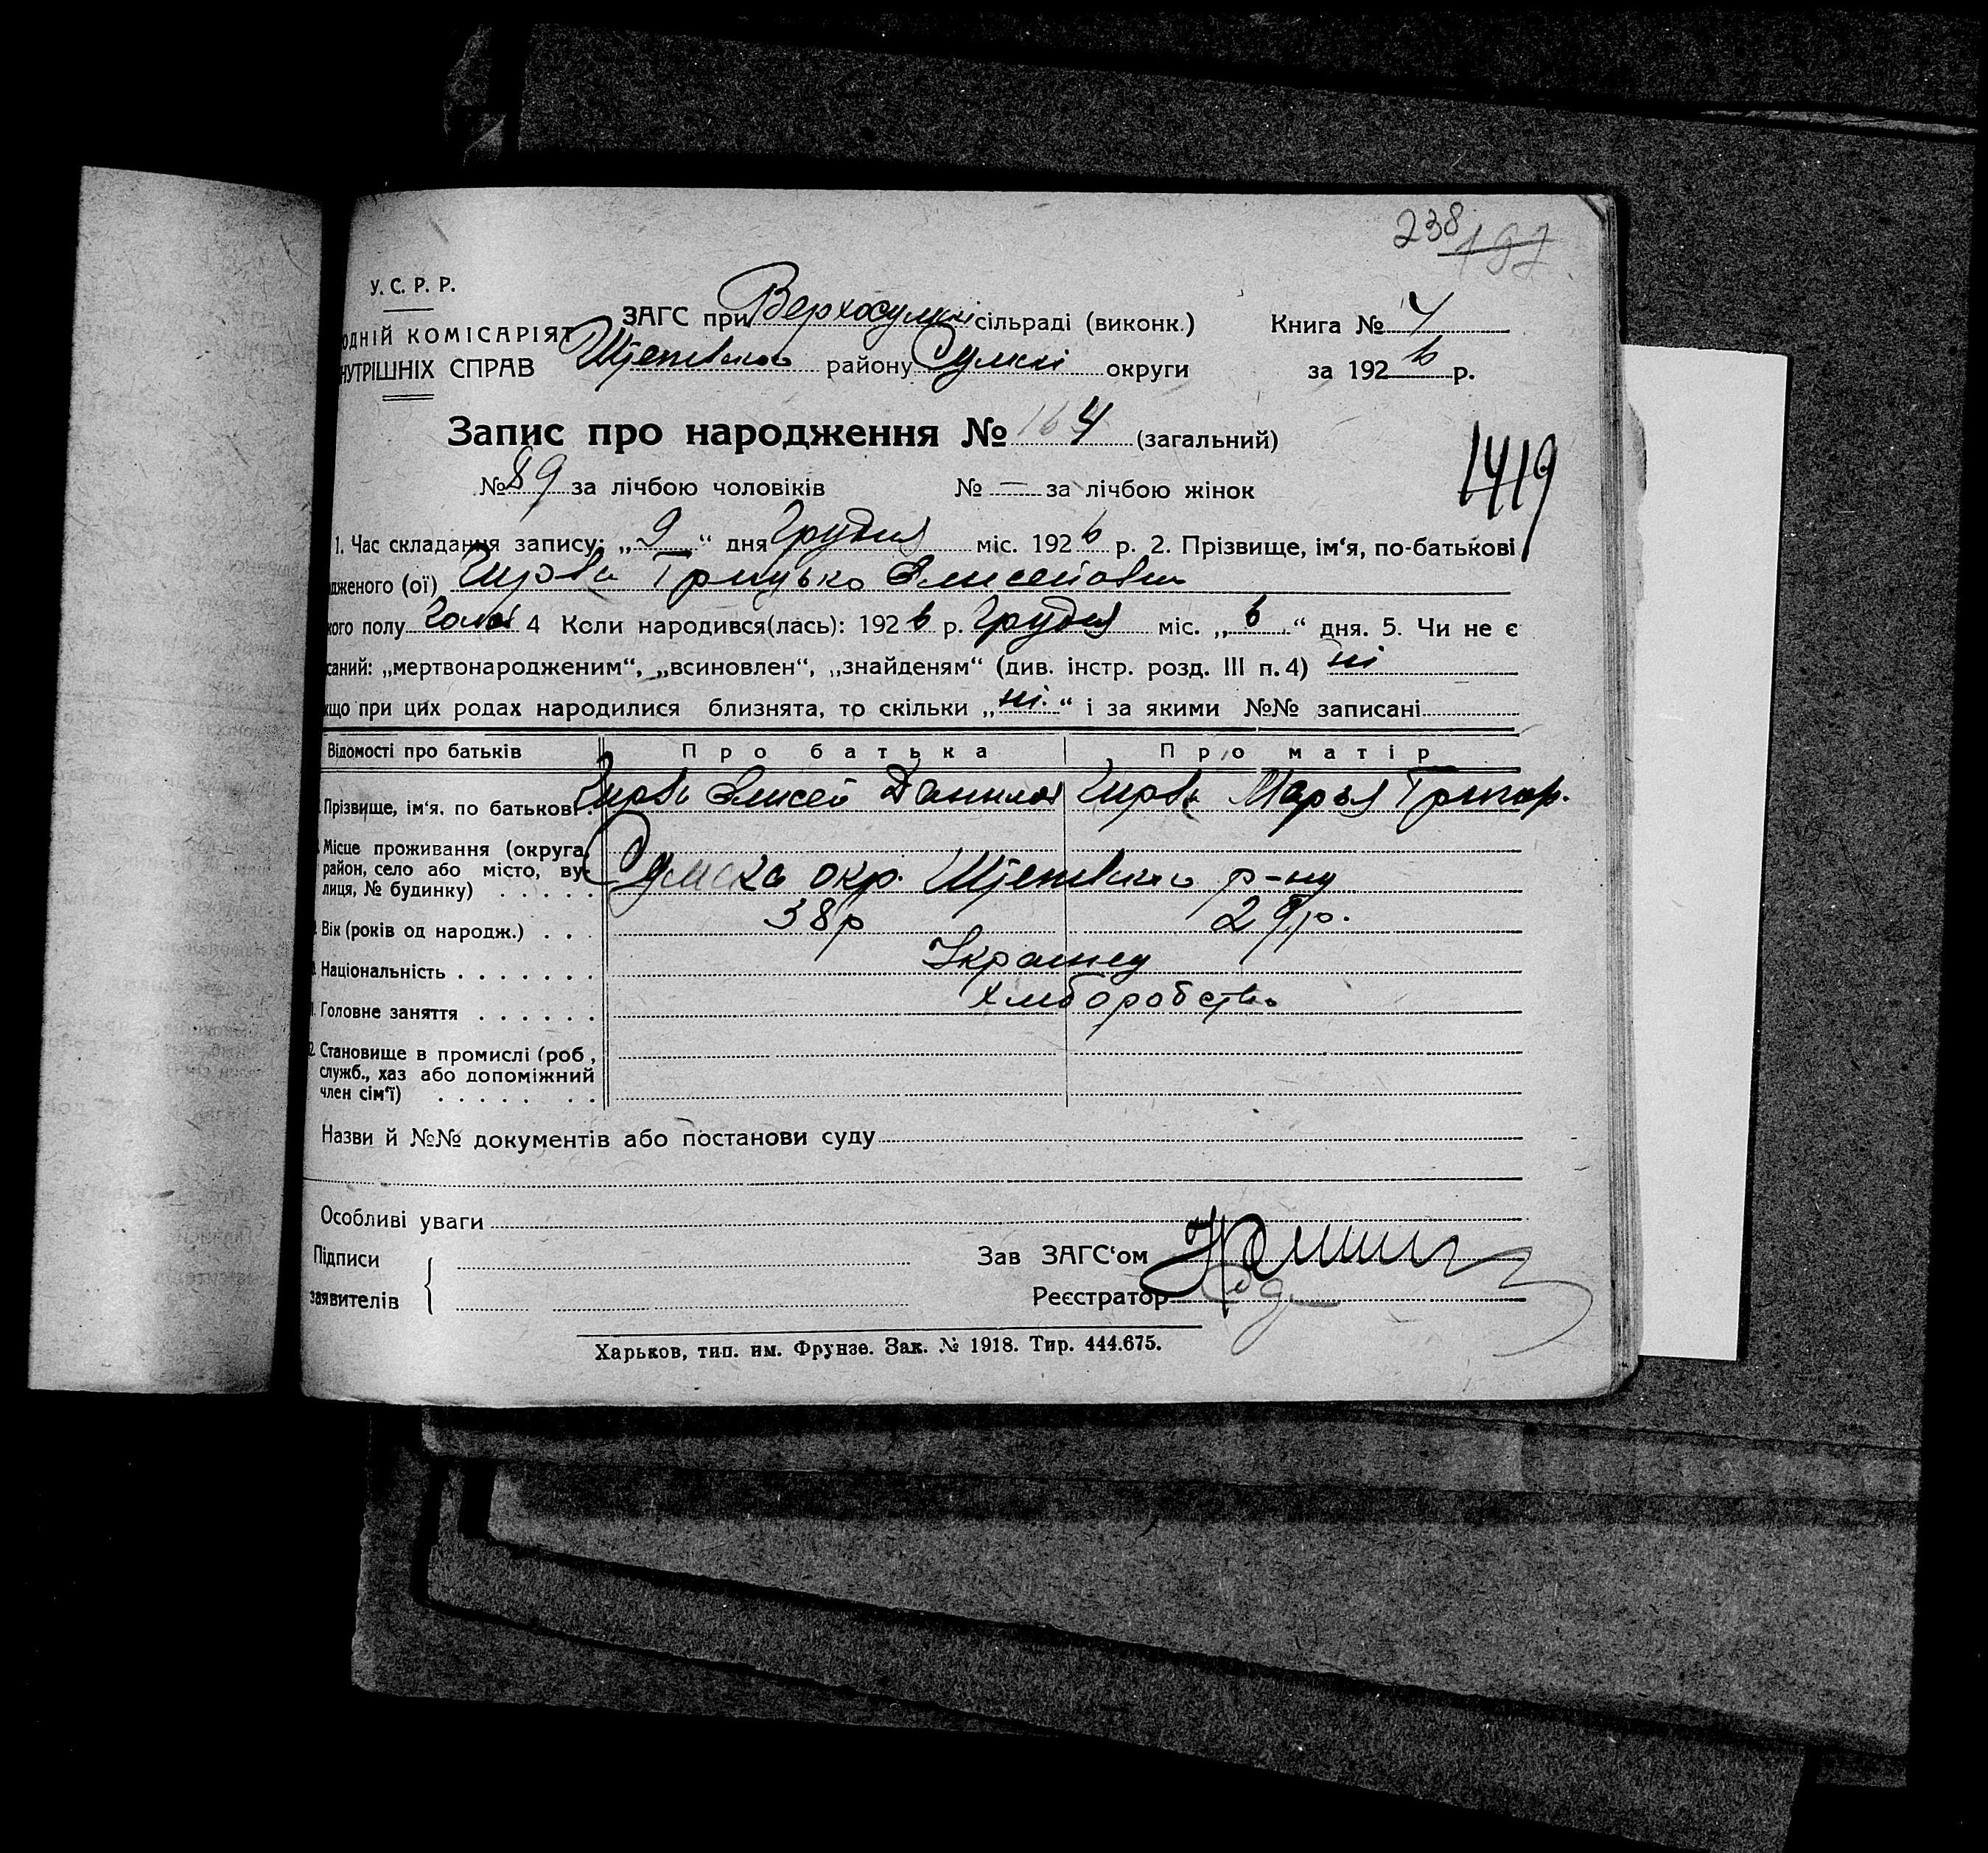 238 197
У. С. Р. Р.
ОДНІЙ КОМІСАРІЯТ
НУТРІШНІХ СПРАВ
ЗАГС при Верхосумскі сільраді (виконк.) Книга № 4
району Сумскі округи за 1926 р.
Запис про народження № 164 (загальний)
1419
№ 89 за лічбою чоловіків № — за лічбою жінок
1. Час складання запису: „9“ дня Грудня міс. 1926 р. 2. Прізвище, ім‘я, по-батькові
дженого (ої) Грицько Елисейович
кого полу чолов 4 Коли народився(лась): 1926 р. Грудня міс. „6“ дня. 5. Чи не є
саний: „мертвонародженим“, „всиновлен“, „знайденям“ (див. інстр. розд. III п. 4) ні
кщо при цих родах народилися близнята, то скільки „ні“ і за якими №№ записані
Відомості про батьків Про батька Про матір
Прізвище, ім‘я. по батькові. Елисей Данилов Марья Григор.
Місце проживання (округа,
район, село або місто, ву-
лиця, № будинку) . . . . . Сумска окр. р-ну
Вік (років од народж.) . . . 38 р 29 р.
Національність . . . . . . .
Головне заняття . . . . . . Хліборобство
2. Становище в промислі (роб,
служб., хаз або допоміжний
член сім‘ї) . . . . . . .
Назви й №№ документів або постанови суду
Особливі уваги
Підписи
заявителів
Зав ЗАГС‘ом
Реєстратор
Харьков, тип. им. Фрунзе. Зак. № 1918. Тир. 444.675.